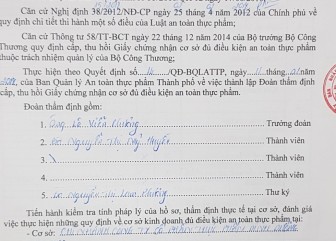 Căn cứ Nghị định 38/2012/NĐ-CP ngày 25 tháng 4 năm 2012 của Chính phủ về
quy định chi tiết thi hành một số điều của Luật an toàn thực phẩm;
Căn cứ Thông tư 58/TT-BCT ngày 22 tháng 12 năm 2014 của Bộ trưởng Bộ Công
Thương quy định cấp, thu hồi Giấy chứng nhận cơ sở đủ điều kiện an toàn thực phẩm
thuộc trách nhiệm quản lý của Bộ Công Thương;
Thực hiện theo Quyết định số /QĐ-BQLATTP, ngày tháng năm
của Ban Quản lý An toàn thực phẩm Thành phố về việc thành lập Đoàn thẩm định
cấp, thu hồi Giấy chứng nhận cơ sở đủ điều kiện an toàn thực phẩm.
Đoàn thẩm định gồm:
1. Trưởng đoàn
2. Thành viên
3. Thành viên
4. Thành viên
5. Thư ký
Tiến hành kiểm tra tính pháp lý của hồ sơ, thẩm định thực tế tại cơ sở, đánh giá
việc thực hiện những quy định về cơ sở kinh doanh đủ điều kiện an toàn thực phẩm tại:
- Cơ sở: